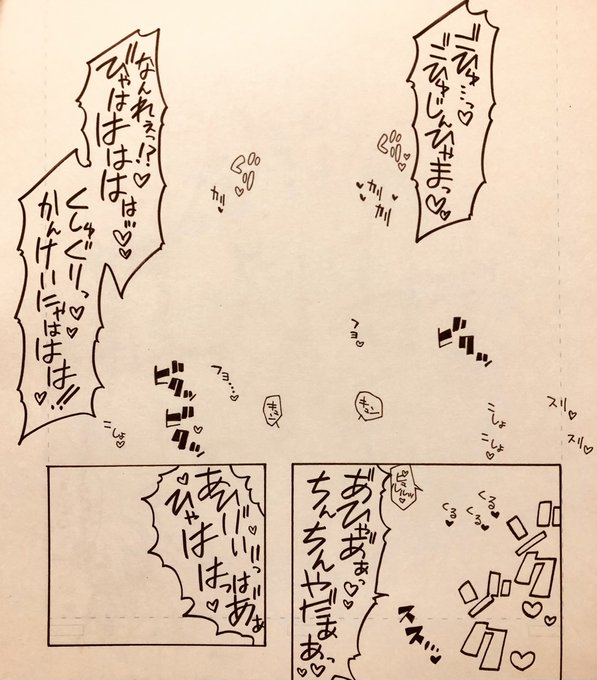 ごひゅ…っ♡
ごひゅじんひゃまっ♡♡
グリグリ♡
カリ♥
カリ♥
グリグリ♡
カリ♥
なんれぇっ!?♡
びゃはははは゛…♡♡
くしゅぐりっ♡
かんけいにゃははは!!♡
ビクッ
フヨ♡
フヨ…♡
ビクッ
ビクッ♡
スリ♡
スリ♡
こしょ
こしょ♡
こしょ♡
キュン
キュン
くる♥
くる♥
くる♥
ススス゛♥
あ゛ひゃあ゛ぁっ♡
ちんちんやだぁぁっ♡♡
あひぃ゛ぃ゛っ♡
ひゃははっはあ゛ぁ♡